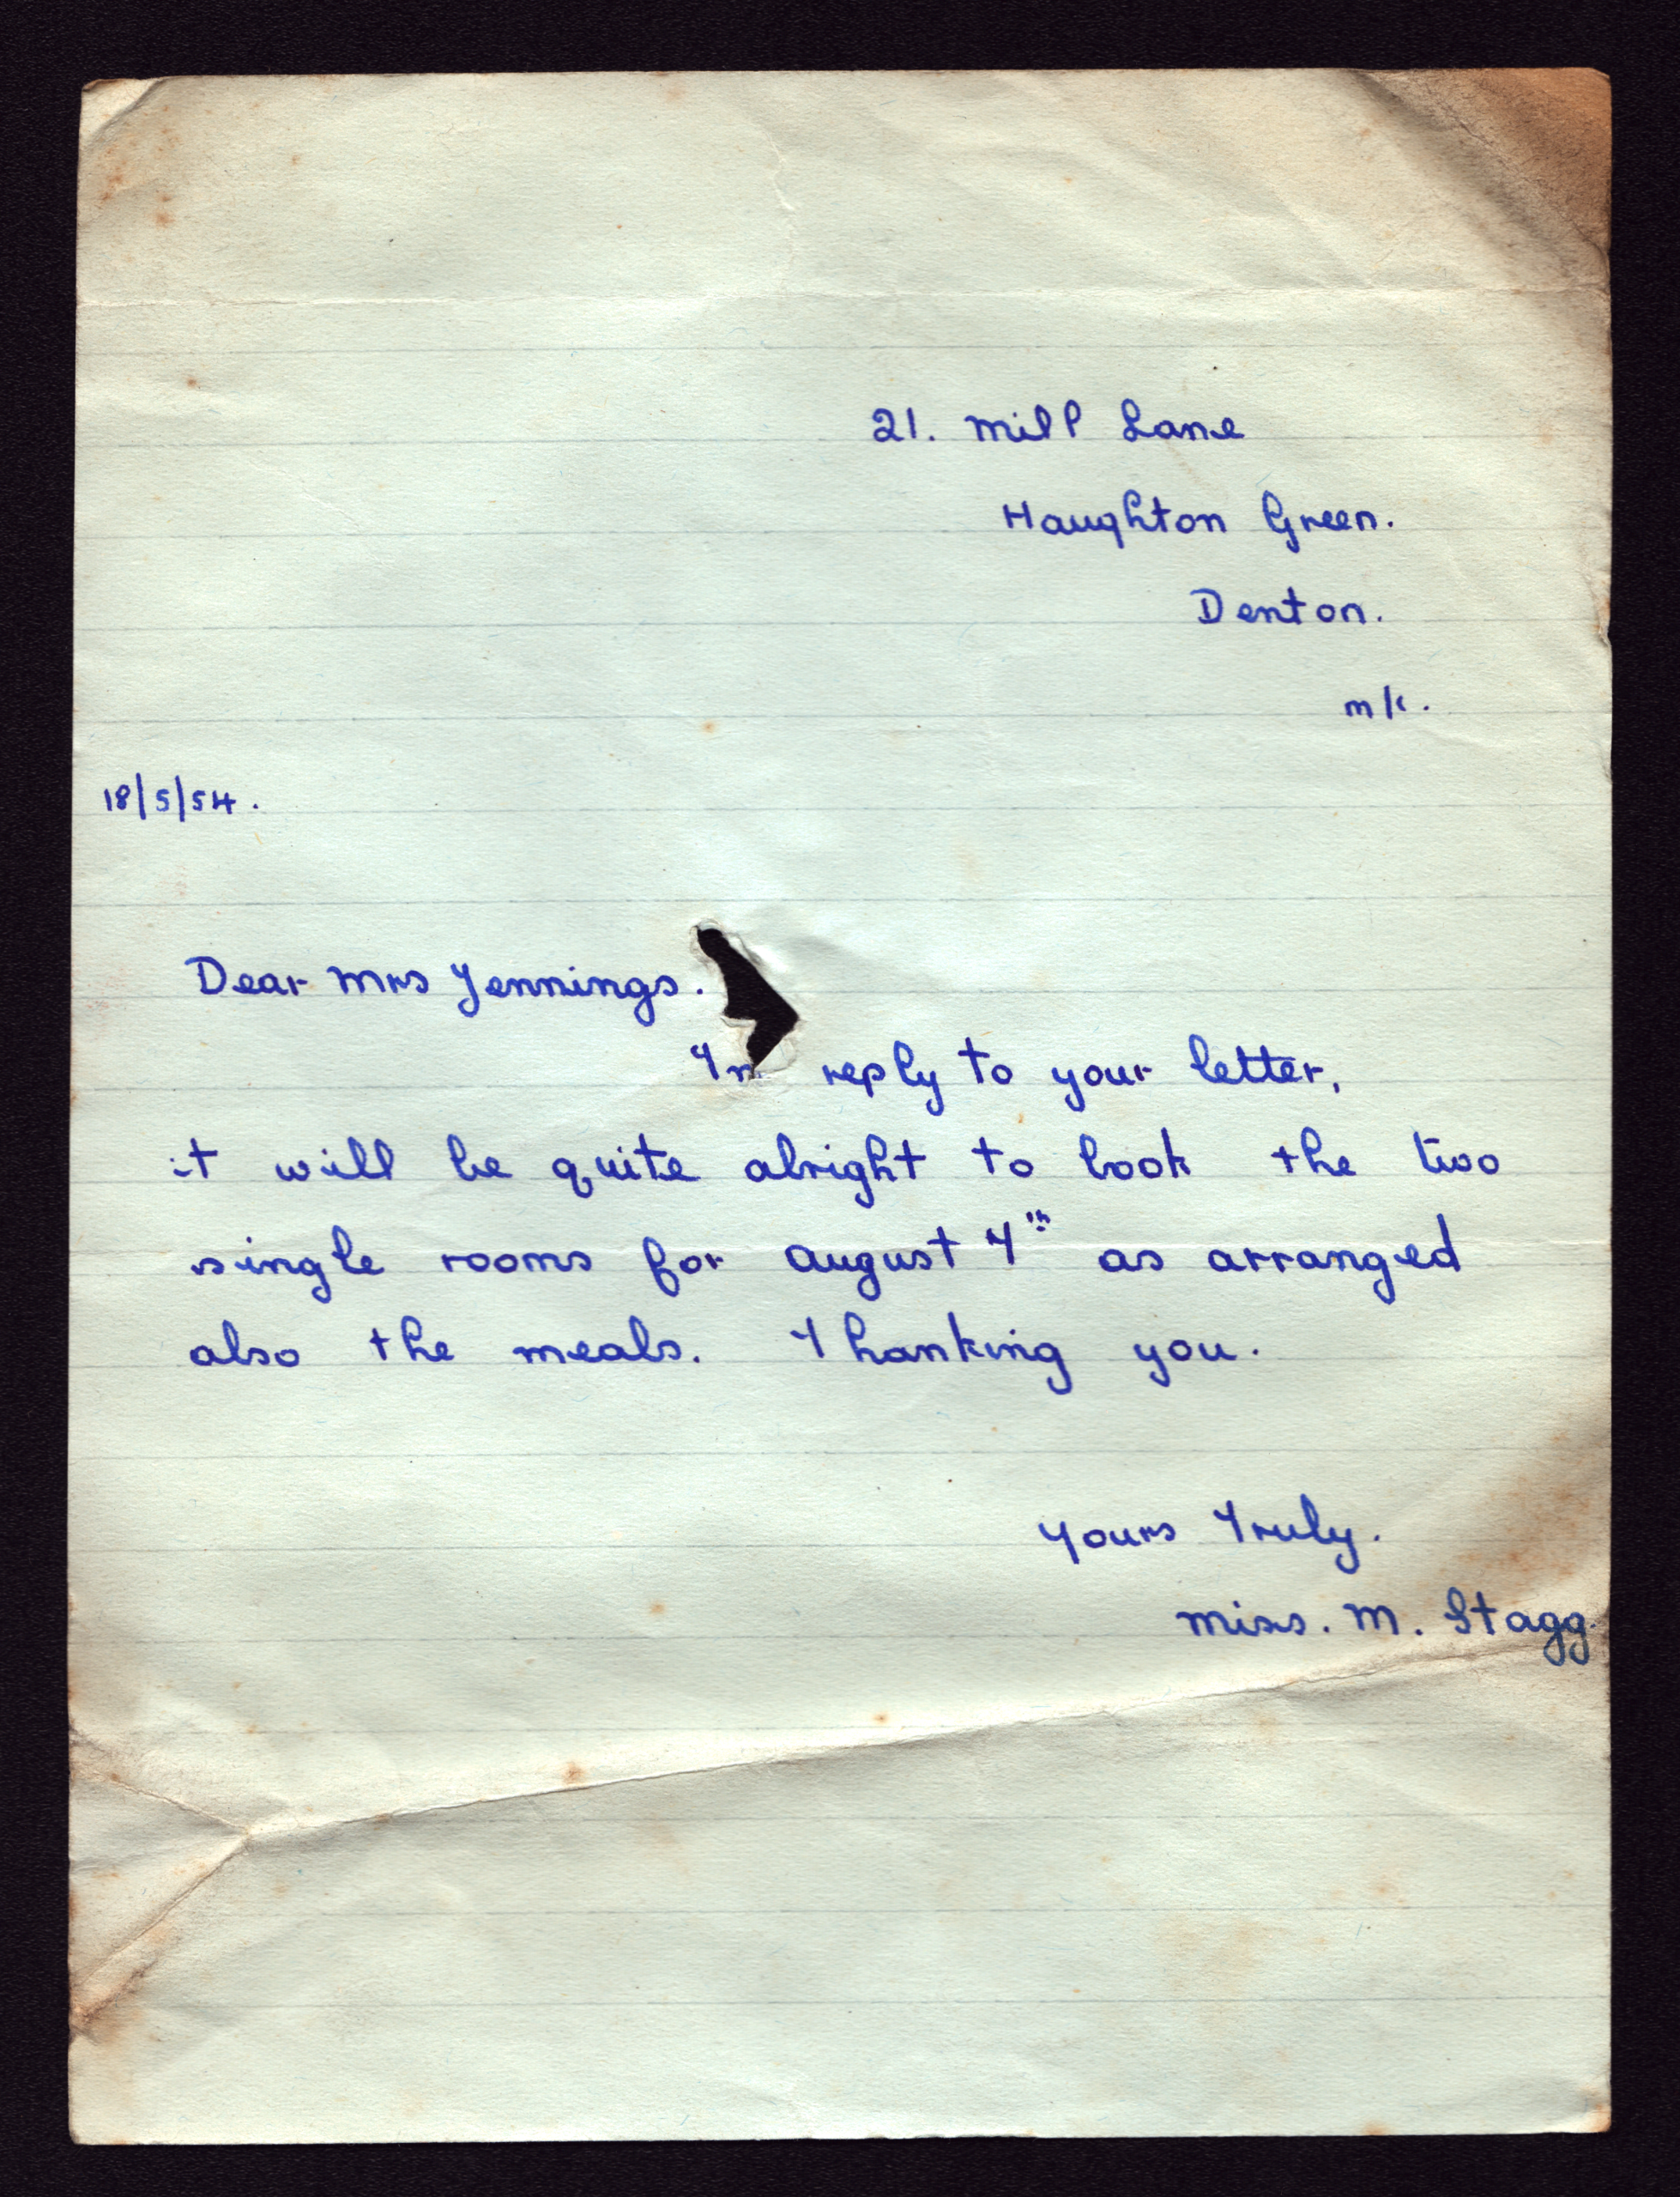 21. Mill Lane
Haughton Green.
Denton.
M/c.
18/5/54.
Dear Mrs Jennings.
In reply to your letter,
it will be quite alright to book the two
single rooms for August 7th as arranged
also the meals. Thanking you.
Yours Truly.
Miss. M. Stagg.